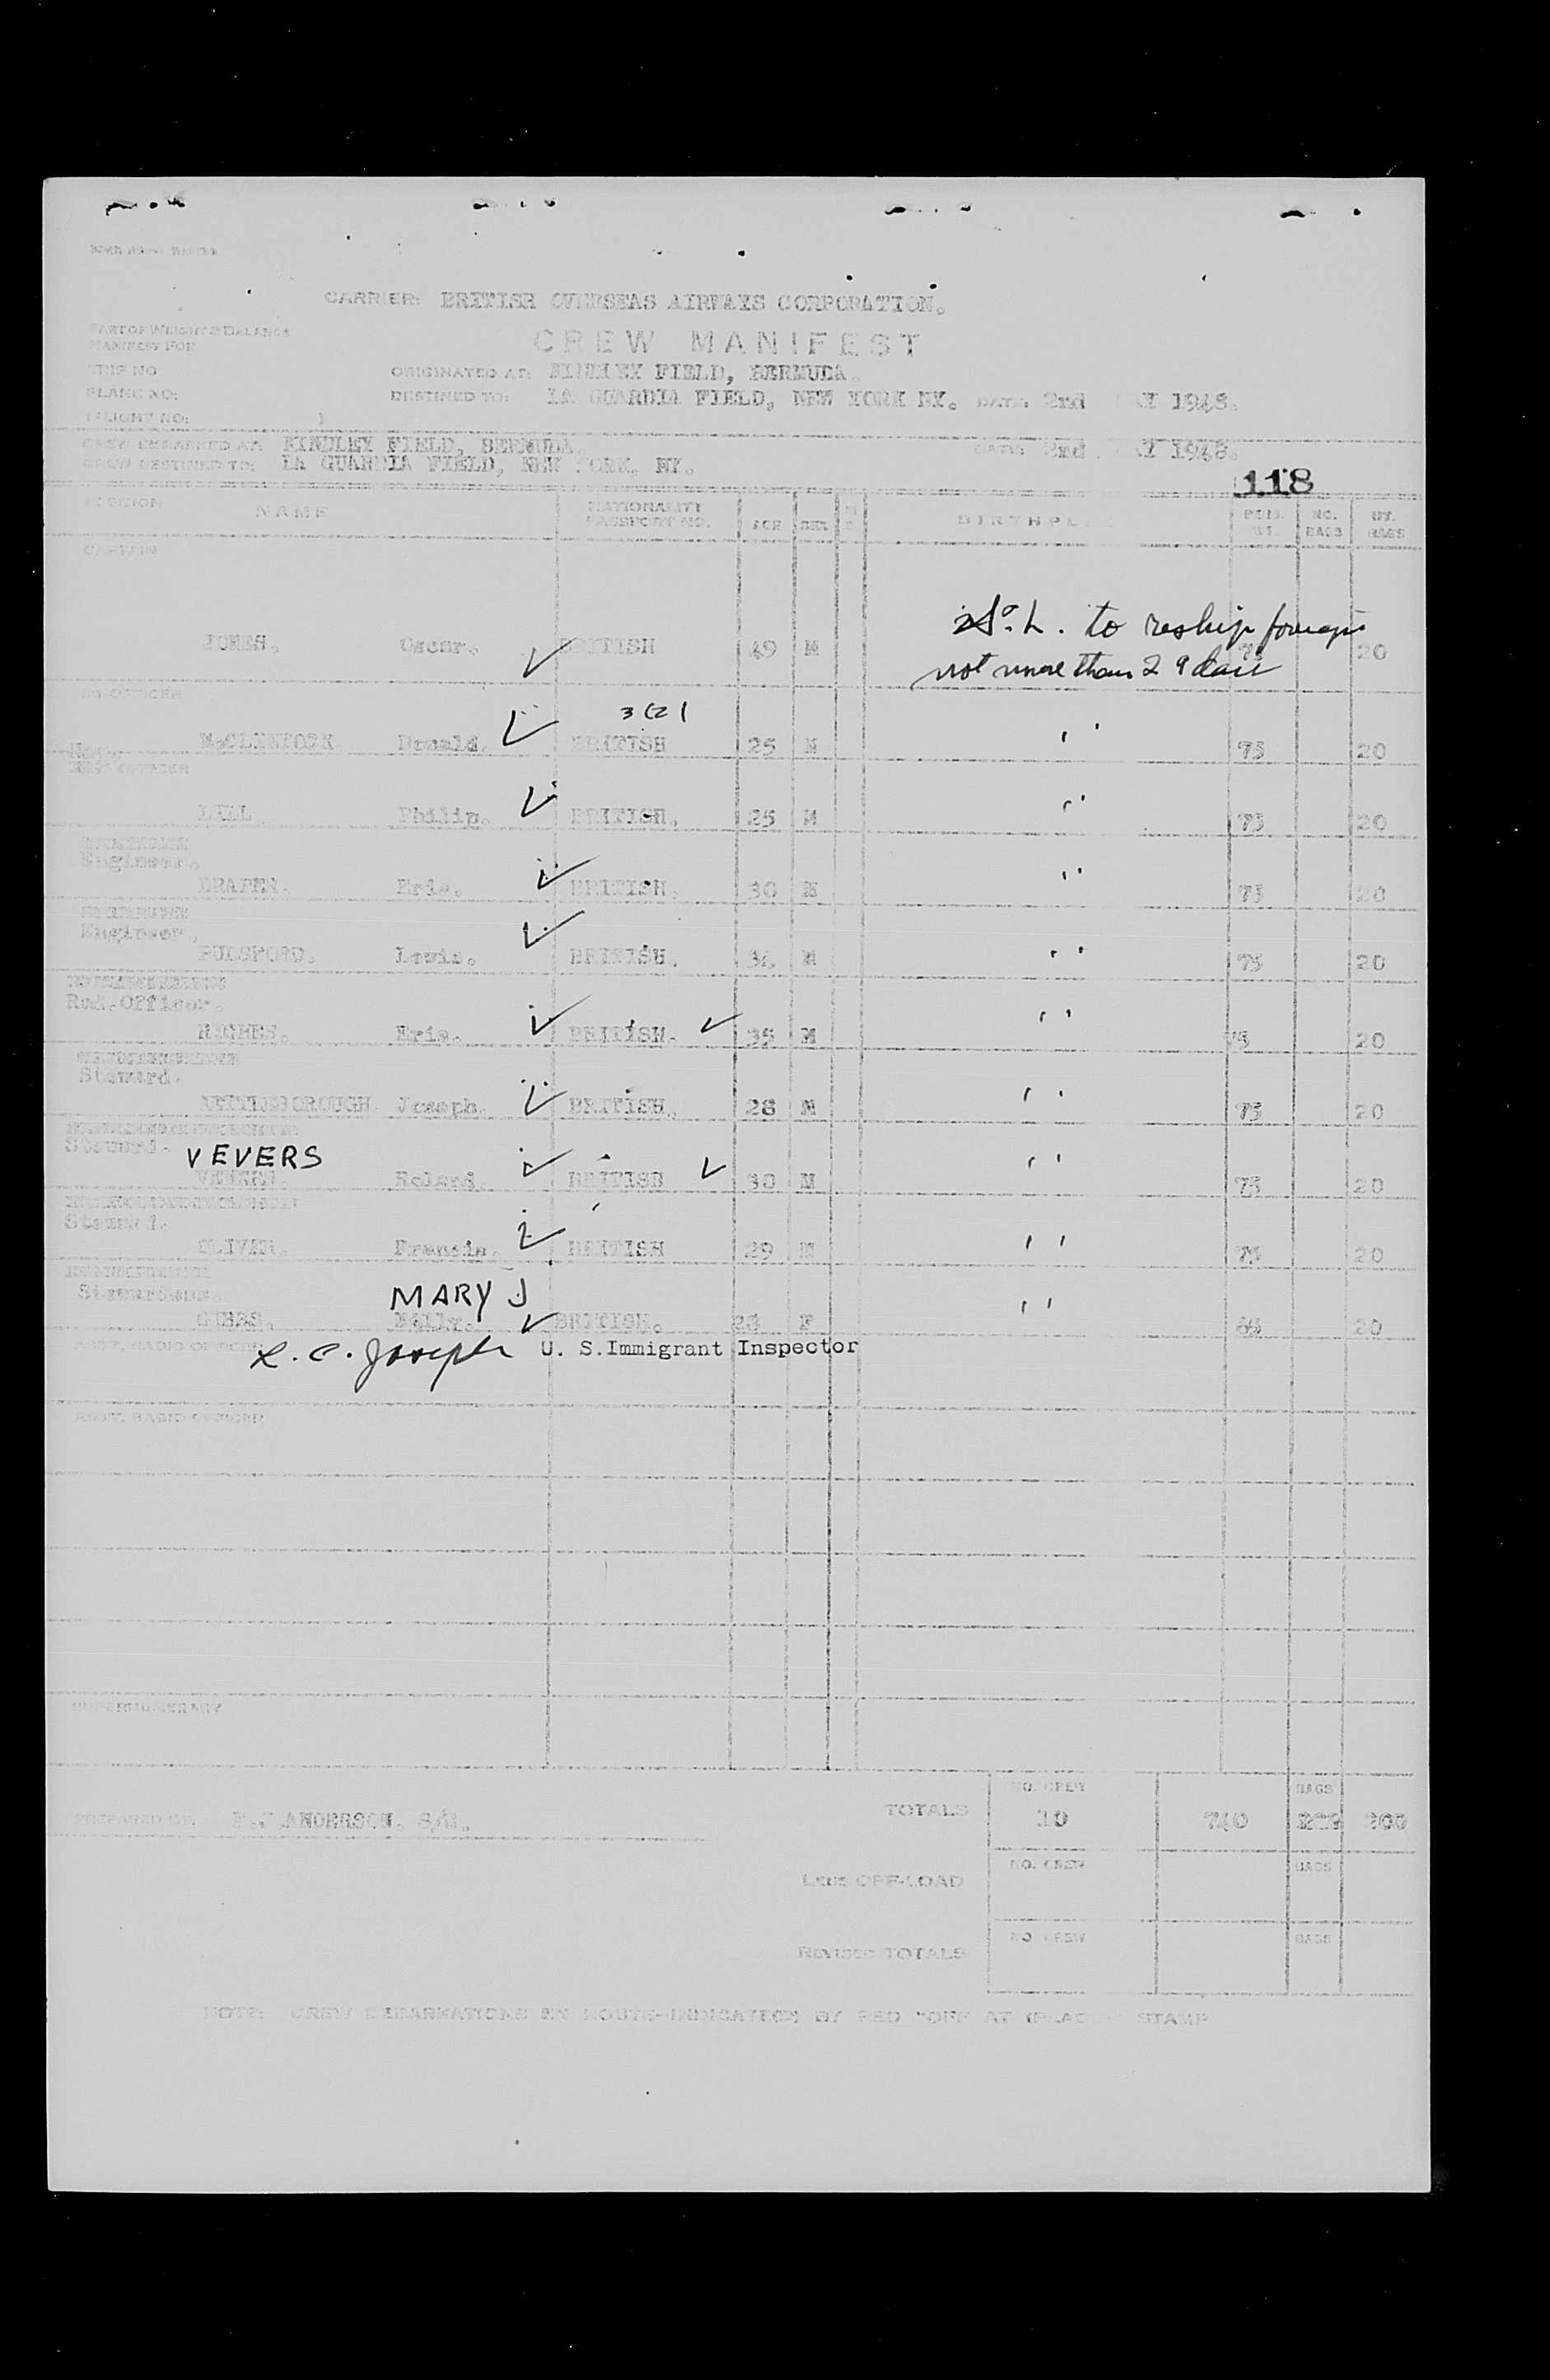 CARRIER: BRITISH OVERSEAS AIRWAYS CORPORATION.
PART OF WEIGHT & BALANCE
MANIFEST FOR
CREW MANIFEST
TRIP NO ORIGINATED AT: KINDLEY FIELD, BERMUDA.
PLANE NO: DESTINED TO: LA GUARDIA FIELD, NEW YORK NY. DATE: 2nd 1948.
FLIGHT NO:
CREW EMBARKED AT: KINDLEY FIELD, BERMUDA. DATE: 2nd 1948.
CREW DESTINED TO: LA GUARDIA FIELD, NEW YORK, NY.
118
POSITION NAME NATIONALITY PASSPORT NO. AGE SEX BIRTHPLACE NO. BAGS WT. BAGS
CAPTAIN
JONES. Oscar. BRITISH 49 M to reship foreign 20
not more than 29 days
1ST OFFICER
3(2)
McCLINTOCK Donald. BRITISH 25 M " 75 20
LILL Philip. BRITISH. 25 M " 75 20
Engineer.
DRAPER. Eric. BRITISH. 30 M " 75 20
Engineer.
PULSFORD. Lewis. BRITISH. M " 75 20
Rad.Officer.
HIGHES. Eric. BRITISH. 35 M " 75 20
Steward.
Joseph. BRITISH. 28 M " 75 20
Steward. VEVERS
Roland. BRITISH 30 M " 75 20
Steward.
OLIVER. Francis. BRITISH 29 M " 75 20
Stewardess. MARY J
GIBBS. BRITISH. F " 65 20
ASST. RADIO OFFICER L. C. Joseph U. S.Immigrant Inspector
ASST. RADIO OFFICER
SUPERNUMERARY
NO. CREW BAGS
PREPARED BY: ANDERSON. TOTALS 10 740 200
NO. CREW BAGS
Less OFF-LOAD
NO CREW BAGS
REVISED TOTALS
NOTE: CREW DEBARKATIONS EN ROUTE INDICATED BY RED "OFF AT (PLACE) STAMP